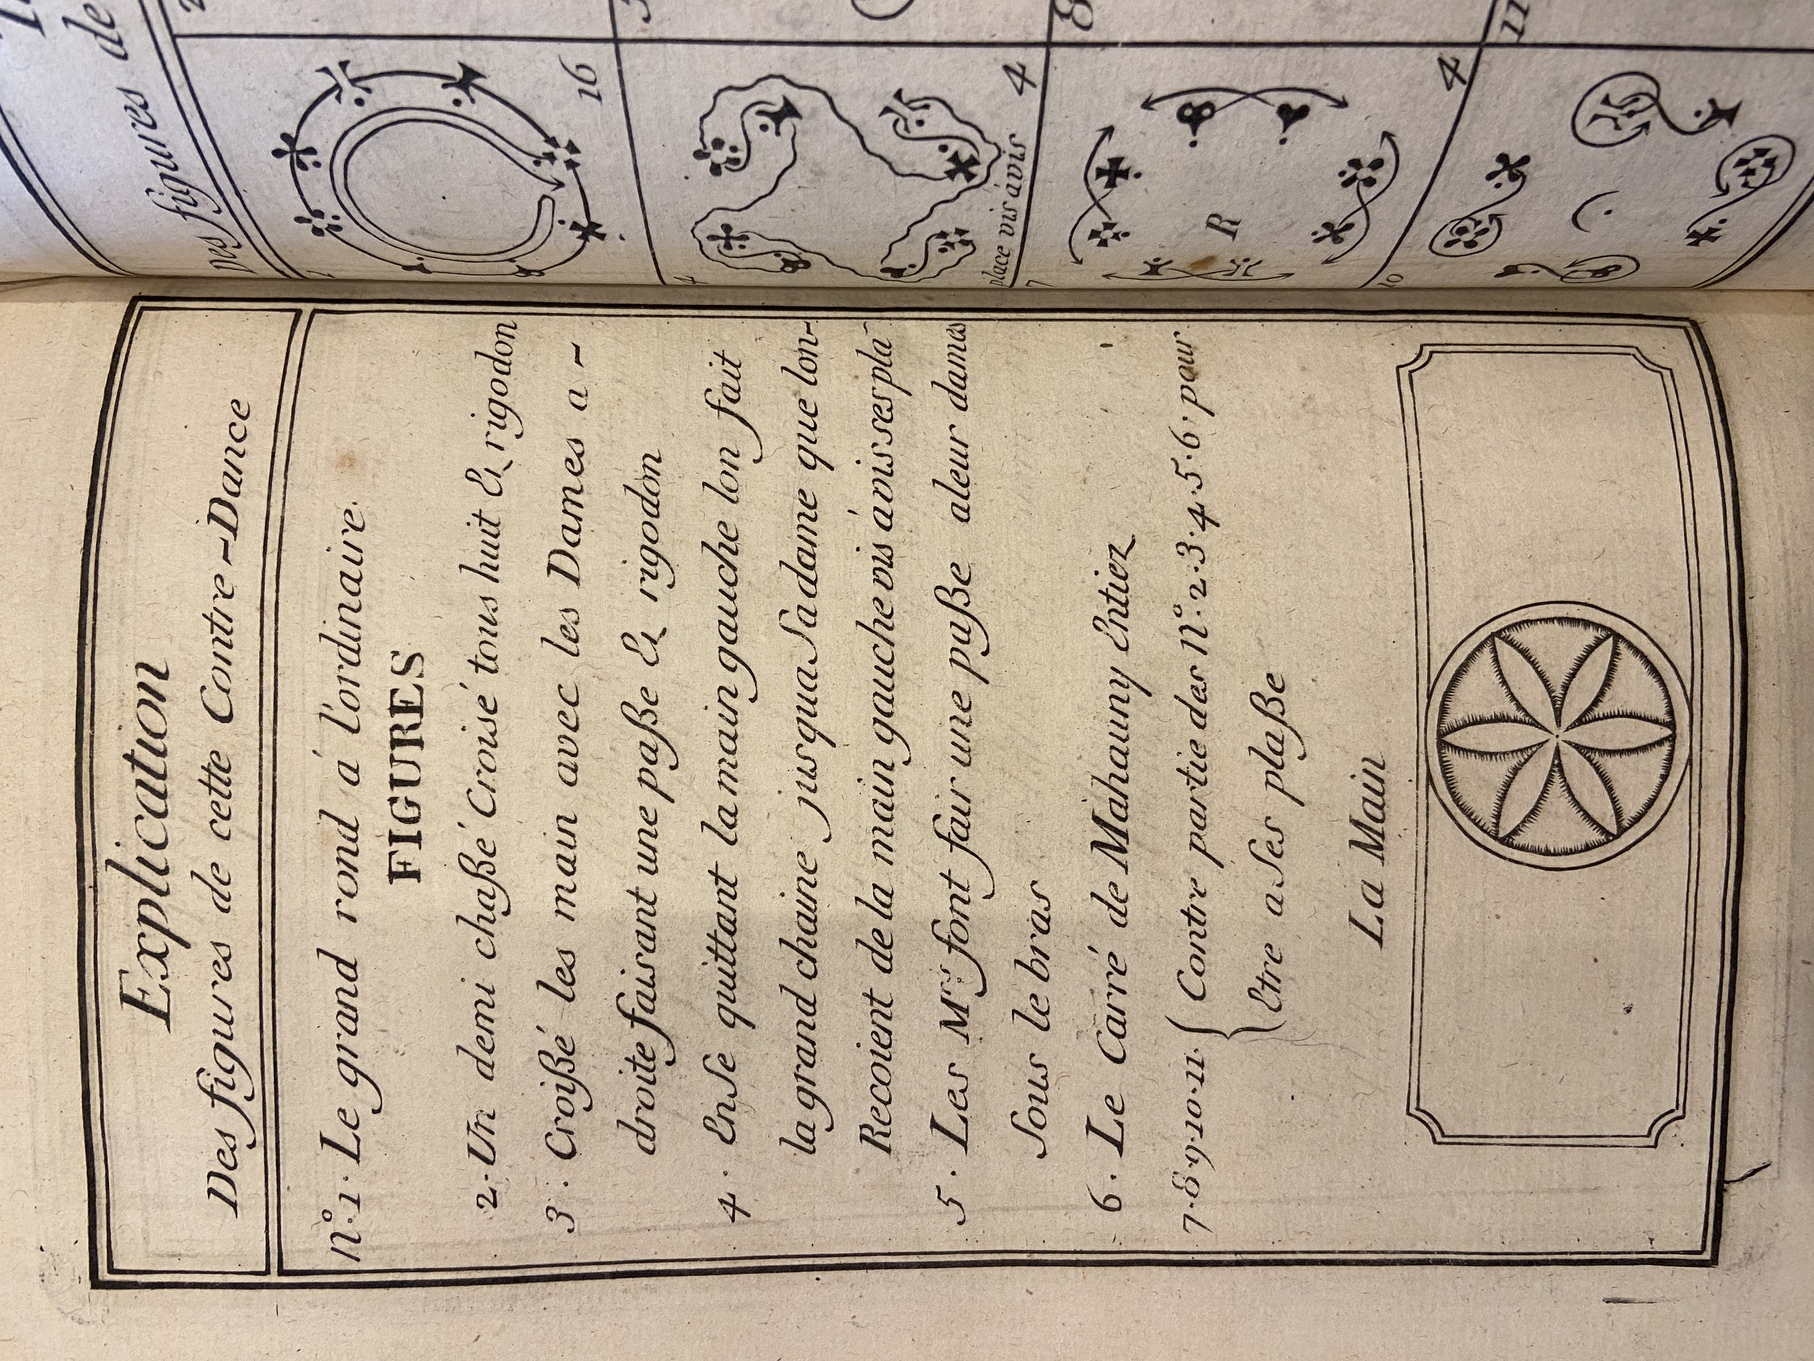 Explication
Des figures de cette Contre-Dance
N.º 1. Le grand rond á l'ordinaire.
FIGURES
2. Un demi chaßé Croisé tous huit & rigodon
3. Croißé les main avec les Dames a -
droite faisant une paße & rigodon
4. Ense quittant la main gauche lon fait
la grand chaine jusqua sa dame que lon-
Recoient de la main gauche vis ávis ses pla-
5. Les Mrs font fair une paße aleur dames
Sous le bras
6. Le Carré de Mahauny Entiez
7.8.9.10.11. { Contre partie des N.º 2.3.4.5.6. pour
Etre a ses plaße
La Main
de
Des figures
1
16
4
4
place vis ávis
7
R
4
8
10
11